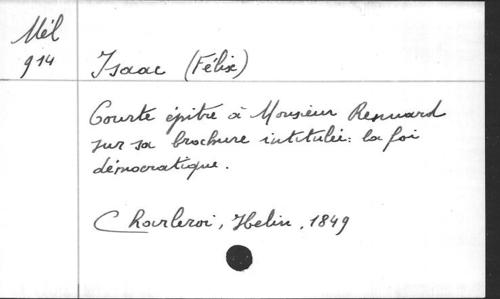 Mél
914
Isaac (Félix)
Courte épitre à Monsieur Renuard
sur sa brochure intitulée: la foi
démocratique.
Charleroi, Helin, 1849